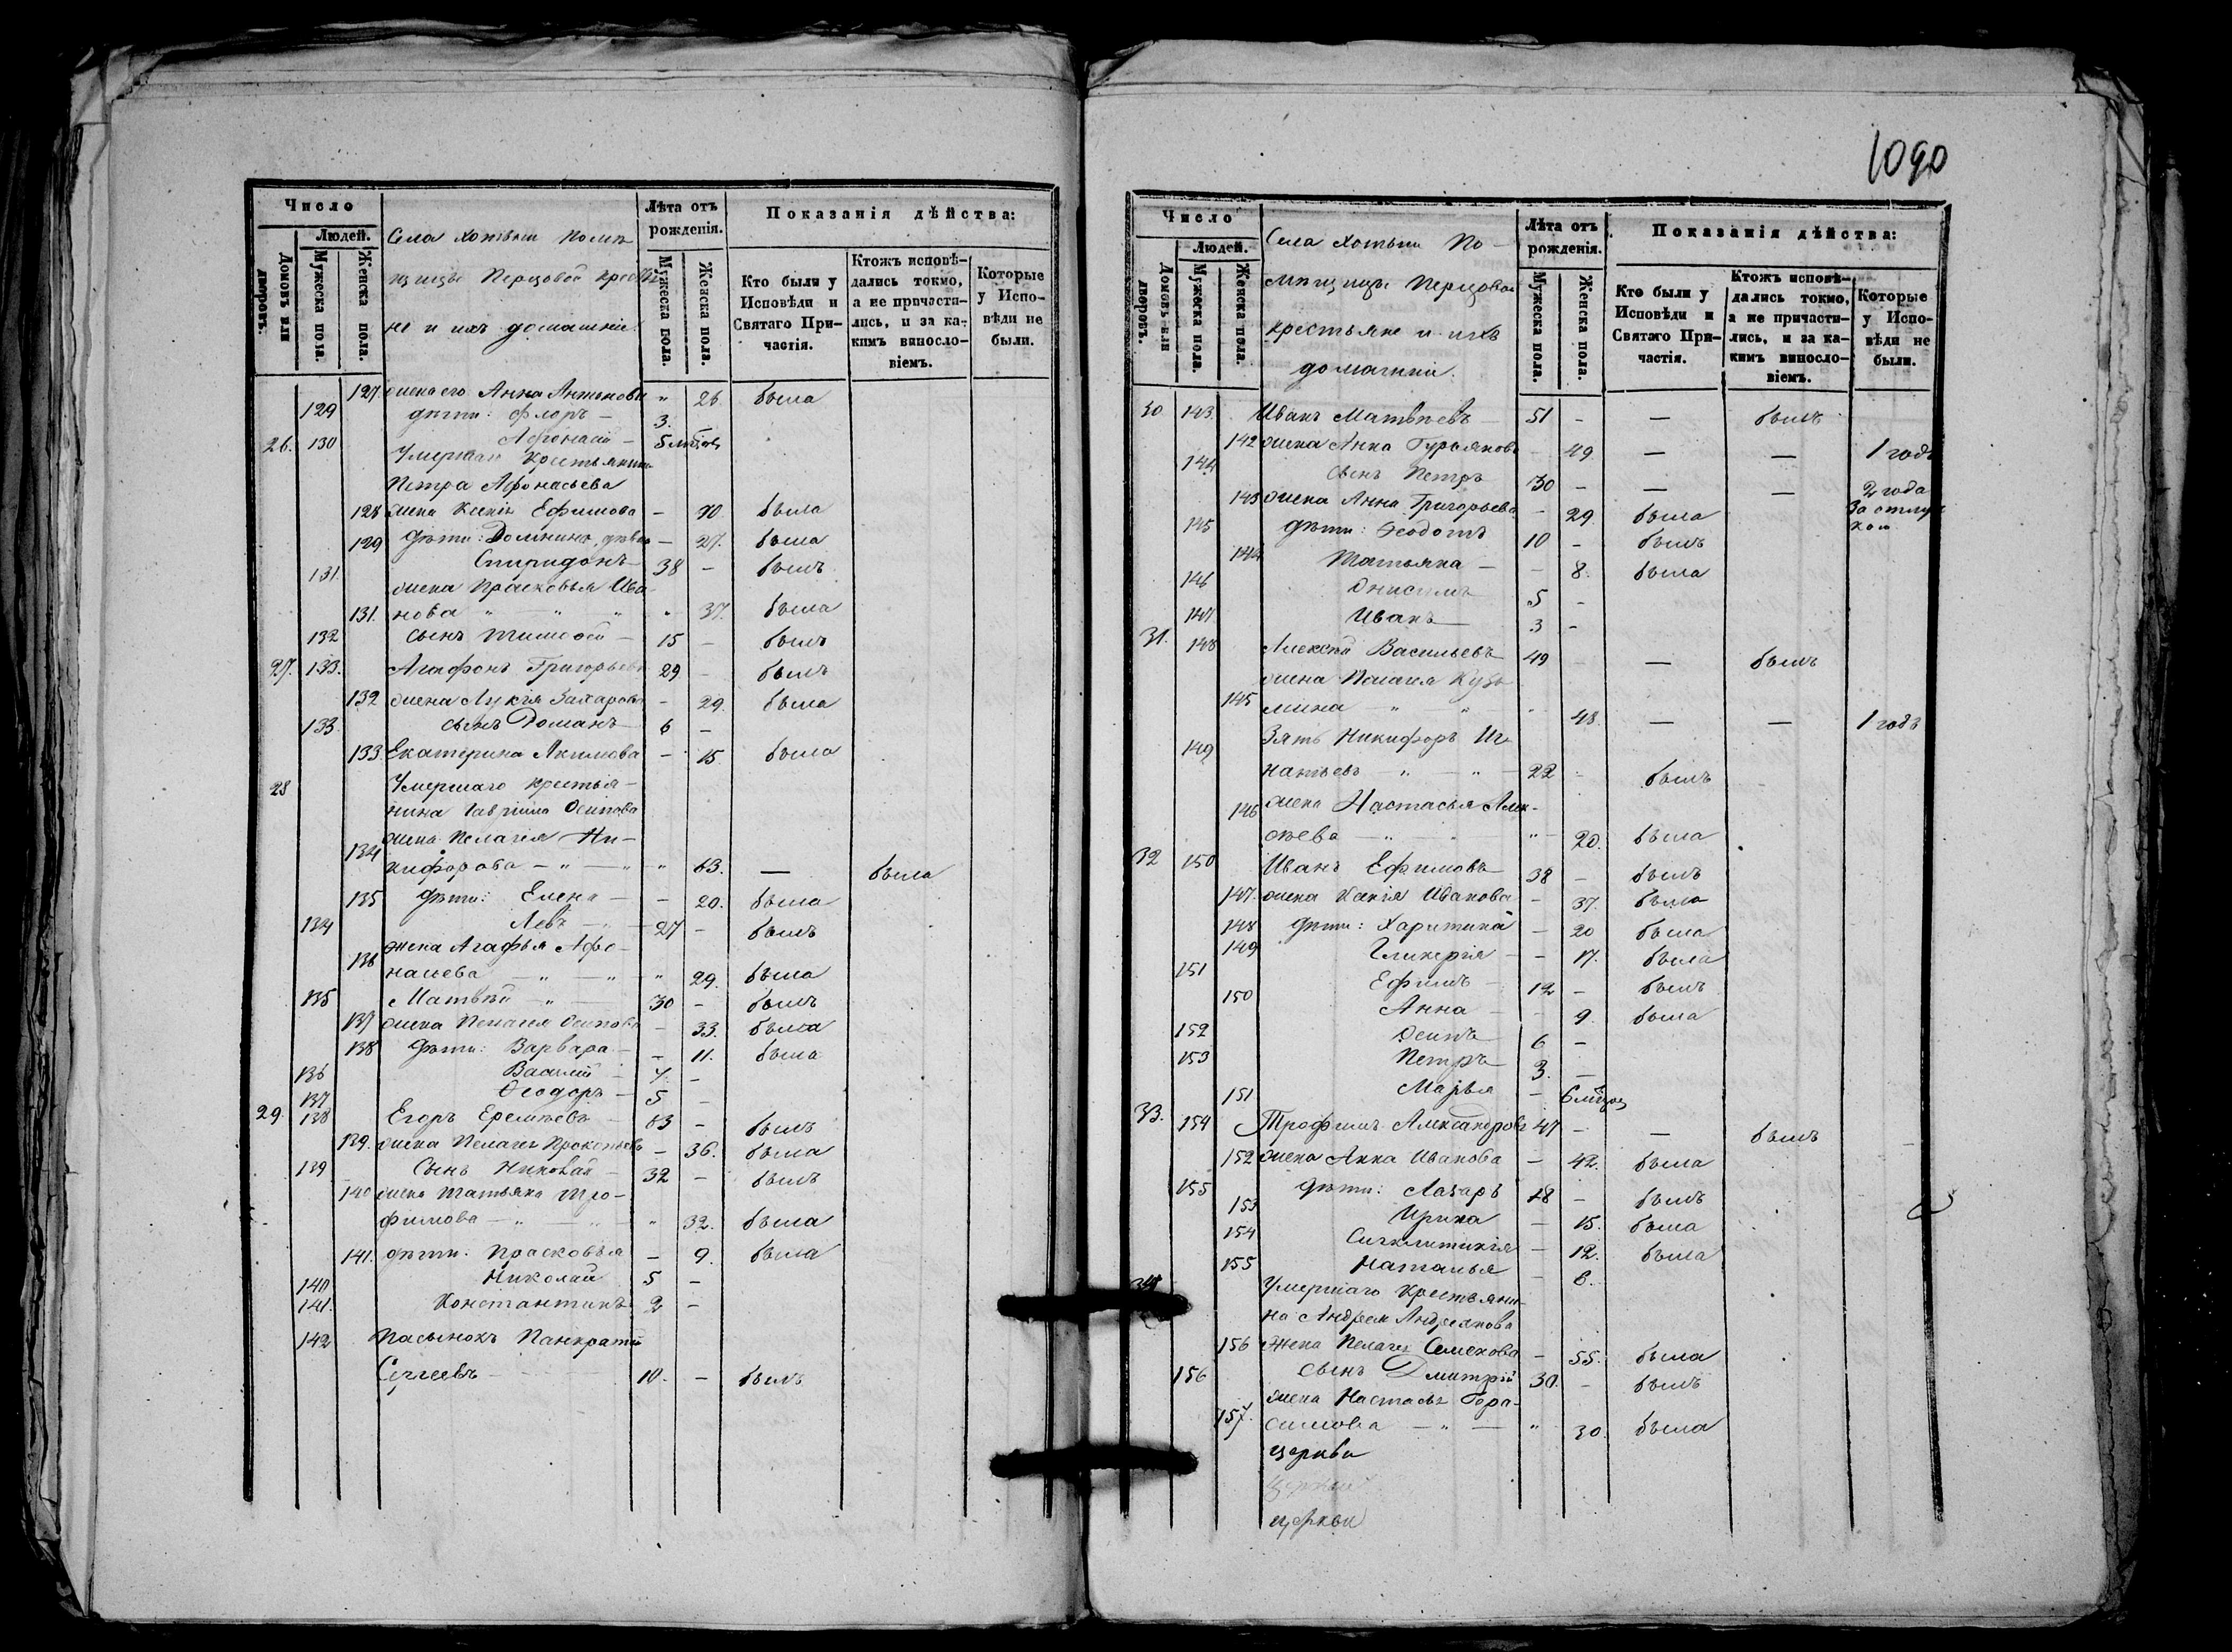 Число
Людей.
Домовъ или дворовъ.
Мужеска пола.
Женска пола.
Села Хотьни Помѣ-
щицы Перцовой кресть
не и ихъ домашніе.
Лѣта отъ рожденія.
Мужеска пола.
Женска пола.
Показанія дѣйства:
Кто были у Исповѣди и Святаго При-частія.
Ктожъ исповѣ-дались токмо, а не причасти-лись, и за ка-кимъ виносло-віемъ.
Которые у Испо-вѣди не были.
127. жена его Анна Антонова " 26. была
129 дѣти: Флоръ — 3.
26. 130 Афонасій — 5
Умершаго Крестьянина
Петра Афонасьева
128 жена Ксенія Ефимова — 70 была
129 дѣти: Домнина — 27. была
131. Спиридонъ 38 — былъ
жена Прасковья Ива
131. нова " — " " " 37. была
132 сынъ Тимофей — 15 — былъ
27. 133. Агафонъ Григорьевъ 29 — былъ
132 жена Лукія Захарова — 29. была
133. сынъ Романъ 6 —
133. Екатерина Акимова — 15 была
28 Умершаго крестья-
нина Гавріила Осипова
жена Пелагія Ни-
134 кифорова — " — " 63. — была
135 дѣти: Елена — — 20. была
134 Левъ — 27 — былъ
жена Агафья Афо-
136 насьева — " — " " 29. была
135 Матвѣй — " 30 — былъ
137 жена Пелагея Осипова — 33. была
138 дѣти: Варвара — — 11. была
136 Василій — 7. —
137 Ѳеодоръ — 5 —
29. 138 Егоръ Еремѣевъ 63 — былъ
139. жена Пелагея Прокофьева — 36. была
139 Сынъ Николай — 32 — былъ
140 жена Татьяна Тро-
фимова — " — " — " 32. была
141. дѣти: Прасковья — 9. была
140 Николай 5 —
141. Константинъ 2 —
142 Пасынокъ Панкратій
Сергеевъ 10. — былъ
1090
Число
Людей.
Домовъ или дворовъ.
Мужеска пола.
Женска пола.
Села Хотьни По-
мѣщицы Перцовой
крестьяне и ихъ
домашніи.
Лѣта отъ рожденія.
Мужеска пола.
Женска пола.
Показанія дѣйства:
Кто были у Исповѣди и Святаго При-частія.
Ктожъ исповѣ-дались токмо, а не причасти-лись, и за ка-кимъ виносло-віемъ.
Которые у Испо-вѣди не были.
30 143. Иванъ Матвѣевъ 51 — — былъ
142 жена Анна Гурьянова — 49. — — 1 годъ
144 сынъ Петръ 30 — — — 2 года
За отлуч
кой
143 жена Анна Григорьева — 29. была
145 дѣти: Ѳеодотъ 10 — былъ
144 Татьяна — — 8. была
146 Онисимъ 5 —
147 Иванъ 3 —
31. 148 Алексѣй Васильевъ 49 — — былъ
жена Пелагея Кузь
145 мина " " " 48. — — 1 годъ
149 Зять Никифоръ Иг-
натьевъ — " — " — 22 былъ
146 жена Настасья Алек-
сѣева — " " 20. была
32 150 Иванъ Ефимовъ 38 — былъ
147. жена Ксенія Иванова — 37. была
148 дѣти: Харитина — 20 была
149 Гликерія — — 17. была
151 Ефимъ — 12 — былъ
150 Анна — — 9. была
152 Осипъ 6 —
153 Петръ 3. —
151 Марья — 6
33. 154 Трофимъ Александровъ 47 — — былъ
152 жена Анна Иванова — 42. была
155 дѣти: Лазарь 18 — былъ
153 Ирина — 15. была
154 Сигклитикія — 12. была
155 Наталья — 6.
34 Умершаго Крестьяни-
на Андрея Андреянова
156 жена Пелагея Семенова — 55. была
156 сынъ Дмитрій 30. — былъ
жена Настасья Гера-
157. симова — " — " 30. была
церкви
церкви
церкви